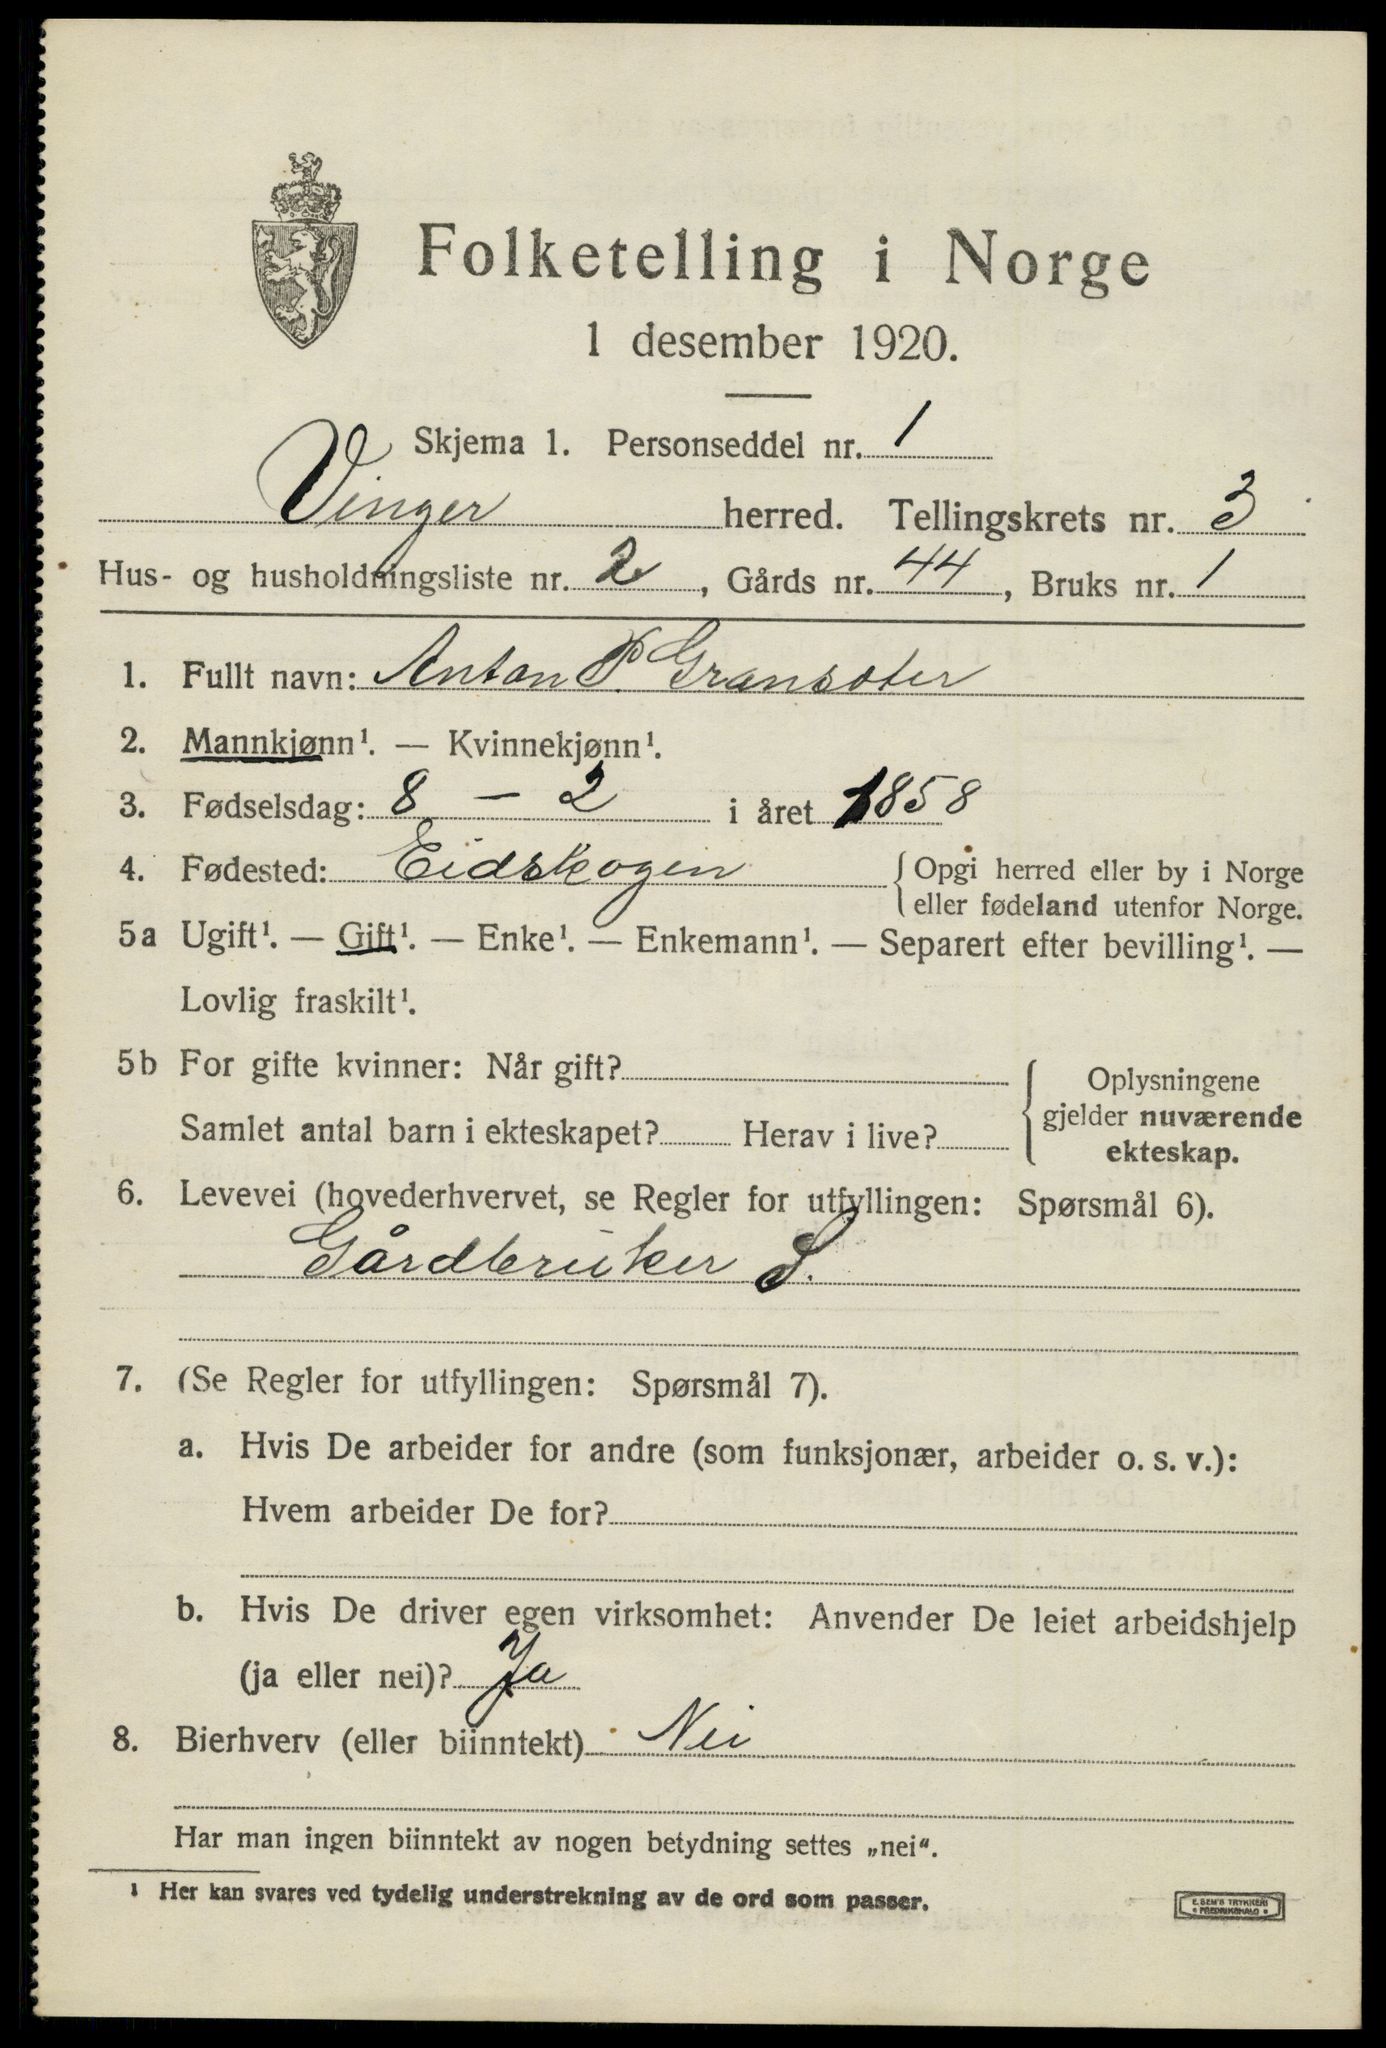 Folketelling i Norge
1 desember 1920.
Skjema 1. Personseddel nr. 1
Vinger herred. Tellingskrets nr. 3
Hus- og husholdningsliste nr. 2, Gårds nr. 44, Bruks nr. 1
1. Fullt navn: Anton P. Gransøter
2. Mannkjønn¹. — Kvinnekjønn¹.
3. Fødselsdag: 8 – 2 i året 1858
4. Fødested: Eidskogen { Opgi herred eller by i Norge
eller fødeland utenfor Norge.
5a Ugift¹. — Gift¹. — Enke¹. — Enkemann¹. — Separert efter bevilling¹. —
Lovlig fraskilt¹.
5b For gifte kvinner: Når gift? { Oplysningene
gjelder nuværende
Samlet antal barn i ekteskapet? Herav i live?
ekteskap.
6. Levevei (hovederhvervet, se Regler for utfyllingen: Spørsmål 6).
Gårdbruker S.
7. (Se Regler for utfyllingen: Spørsmål 7).
a. Hvis De arbeider for andre (som funksjonær, arbeider o. s. v.):
Hvem arbeider De for?
b. Hvis De driver egen virksomhet: Anvender De leiet arbeidshjelp
(ja eller nei)? Ja
8. Bierhverv (eller biinntekt) Nei
Har man ingen biinntekt av nogen betydning settes „nei“.
¹ Her kan svares ved tydelig understrekning av de ord som passer.
E. SEM'S TRYKKERI
• FREDRIKSHALD •